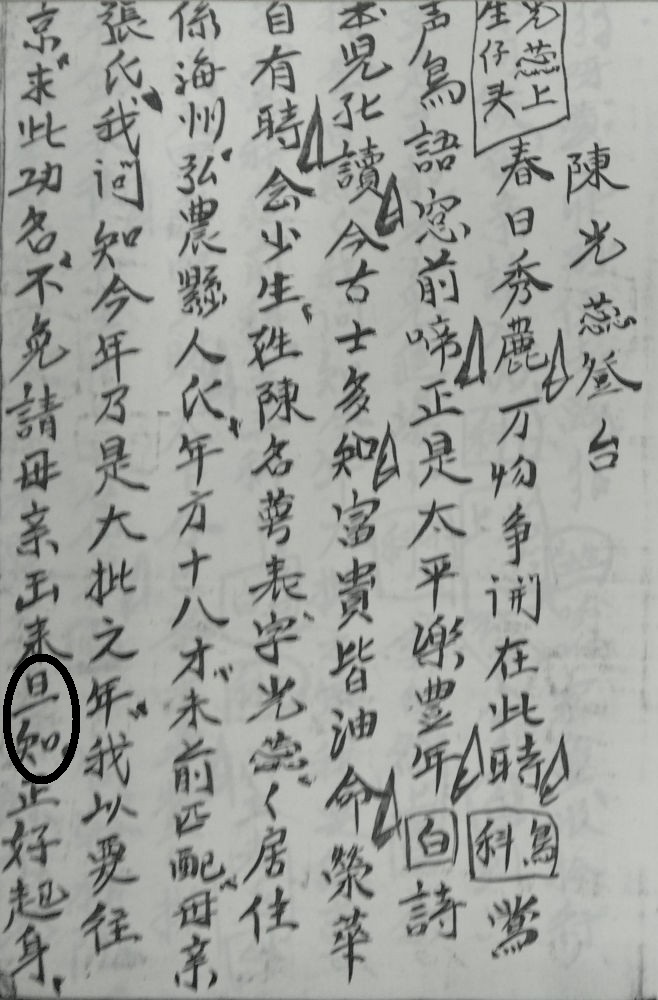 陳光蕊登台
光蕊上
生仔头
春日秀麗万物争開在此時鳥科鶯
声鳥語窓前啼正是太平樂豊年白詩
児孔讀今古士多知富貴皆油命榮華
自有時会少生姓陳名萼表字光蕊く居住
係海州弘農縣人氏年方十八才未前匹配母亲
張氏我问知今年乃是大批之年我以要往
京求此功名不免請母亲出来旦知正好起身